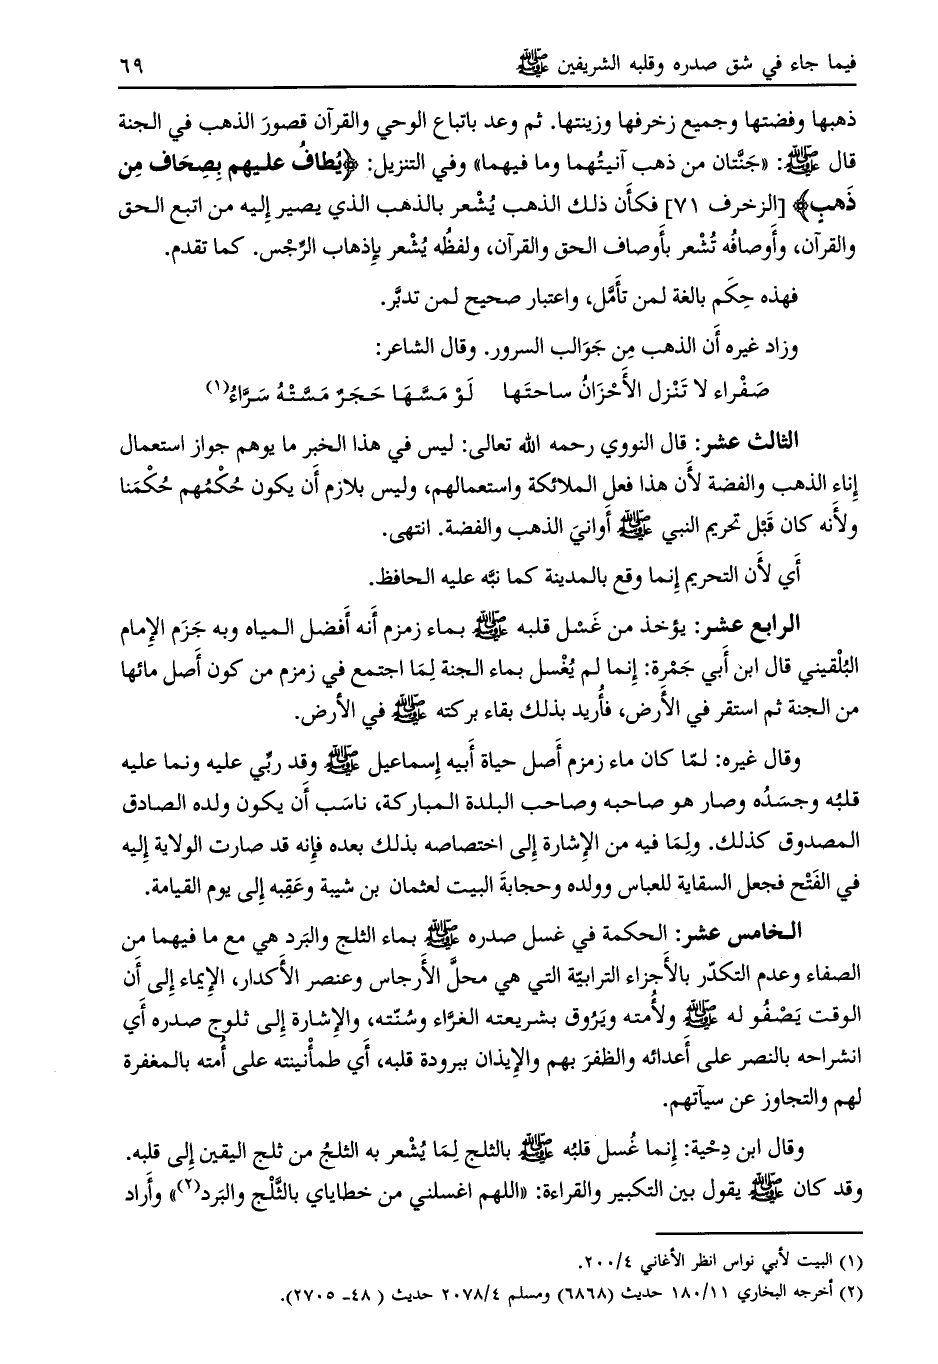 فيما جاء في شق صدره وقلبه الشريفين ﷺ ٦٩
ذهبها وفضتها وجميع زخرفها وزينتها. ثم وعد باتباع الوحي والقرآن قصورَ الذهب في الجنة
قال ﷺ: «جَنَّتان من ذهب آنيتُهما وما فيهما» وفي التنزيل: ﴿يُطافُ عليهم بِصِحَاف مِن
ذَهبٍ﴾ [الزخرف ٧١] فكأَن ذلك الذهب يُشْعر بالذهب الذي يصير إِليه من اتبع الحق
والقرآن، وأَوصافُه تُشْعر بأَوصاف الحق والقرآن، ولفظُه يُشْعر بإِذهاب الرِّجْس. كما تقدم.
فهذه حِكَم بالغة لمن تأَمَّل، واعتبار صحيح لمن تدبَّر.
وزاد غيره أَن الذهب مِن جَوَالب السرور. وقال الشاعر:
صَفْراء لا تَنْزل الأَحْزَانُ ساحتَها لَوْ مَسَّهَا حَجَرٌ مَسَّتْهُ سَرَّاءُ(١)
الثالث عشر: قال النووي رحمه الله تعالى: ليس في هذا الخبر ما يوهم جواز استعمال
إِناء الذهب والفضة لأَن هذا فعل الملائكة واستعمالهم، وليس بلازم أَن يكون حُكْمُهم حُكْمَنا
ولأَنه كان قَبْل تحريم النبي ﷺ أَوانيَ الذهب والفضة. انتهى.
أَي لأَن التحريم إِنما وقع بالمدينة كما نبَّه عليه الحافظ.
الرابع عشر: يؤخذ من غَسْل قلبه ﷺ بماء زمزم أَنه أَفضل المياه وبه جَزَم الإِمام
البُلْقيني قال ابن أَبي جَمْرة: إِنما لم يُغْسل بماء الجنة لِمَا اجتمع في زمزم من كون أَصل مائها
من الجنة ثم استقر في الأَرض، فأُريد بذلك بقاء بركته ﷺ في الأرض.
وقال غيره: لمّا كان ماء زمزم أَصل حياة أَبيه إِسماعيل ﷺ وقد ربِّي عليه ونما عليه
قلبُه وجسَدُه وصار هو صاحبه وصاحب البلدة المباركة، ناسَب أَن يكون ولده الصادق
المصدوق كذلك. ولِمَا فيه من الإِشارة إِلى اختصاصه بذلك بعده فإِنه قد صارت الولاية إِليه
في الفَتْح فجعل السقاية للعباس وولده وحجابةَ البيت لعثمان بن شيبة وعَقِبه إِلى يوم القيامة.
الخامس عشر: الحكمة في غسل صدره ﷺ بماء الثلج والبَرد هي مع ما فيهما من
الصفاء وعدم التكدّر بالأَجزاء الترابيّة التي هي محلّ الأَرجاس وعنصر الأَكدار، الإِيماء إِلى أَن
الوقت يَصْفُو له ﷺ ولأُمته ويَرُوق بشريعته الغرَّاء وسُنّته، والإِشارة إِلى ثلوج صدره أَي
انشراحه بالنصر على أَعدائه والظفرَ بهم والإِيذان ببرودة قلبه، أَي طمأْنينته على أُمته بالمغفرة
لهم والتجاوز عن سيآتهم.
وقال ابن دِحْية: إِنما غُسل قلبُه ﷺ بالثلج لِمَا يُشْعر به الثلجُ من ثلج اليقين إِلى قلبه.
وقد كان ﷺ يقول بين التكبير والقراءة: «اللهم اغسلني من خطاياي بالثَّلْج والبَرد(٢)» وأَراد
(١) البيت لأبي نواس انظر الأغاني ٢٠٠/٤.
(٢) أخرجه البخاري ١٨٠/١١ حديث (٦٨٦٨) ومسلم ٢٠٧٨/٤ حديث ( ٤٨- ٢٧٠٥).